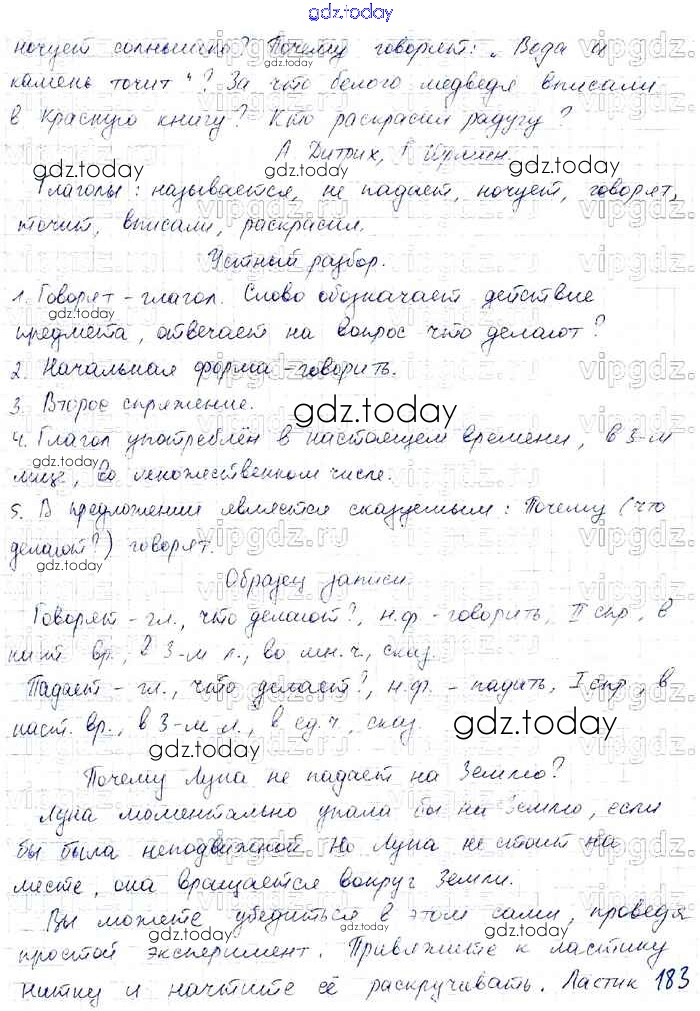 gdz.today
ночует солнышко? Почему говорят: „Вода и
камень точит"? За что белого медведя вписали
в Красную книгу? Кто раскрасил радугу?
gdz.today
А Дитрих, Г Юрмин
gdz.today
Глаголы: называется, не падает, ночует, говорят,
точит, вписали, раскрасил.
Устный разбор.
1. Говорят - глагол. Слово обозначает действие
предмета, отвечает на вопрос что делают?
2. Начальная форма - говорить.
3. Второе спряжение.
gdz.today
4. Глагол употреблён в настоящем времени, в 3-м
лице, во множественном числе.
5. В предложении является сказуемым: Почему (что
делают?) говорят.
Образец записи.
Говорят - гл., что делают?, н.ф - говорить, II спр, в
вр., 3-м л., во мн.ч, сказ.
Падает - гл., что делает?, н.ф. - падать, I спр, в
наст. вр., в 3-м л., в ед.ч, сказ.
gdz.today
Почему Луна не падает на Землю?
Луна моментально упала бы на Землю, если
бы была неподвижной Но Луна не стоит на
месте, она вращается вокруг Земли.
Вы можете убедиться в этом сами, проведя
простой эксперимент. Привяжите к ластику
нитку и начните её раскручивать. Ластик 183